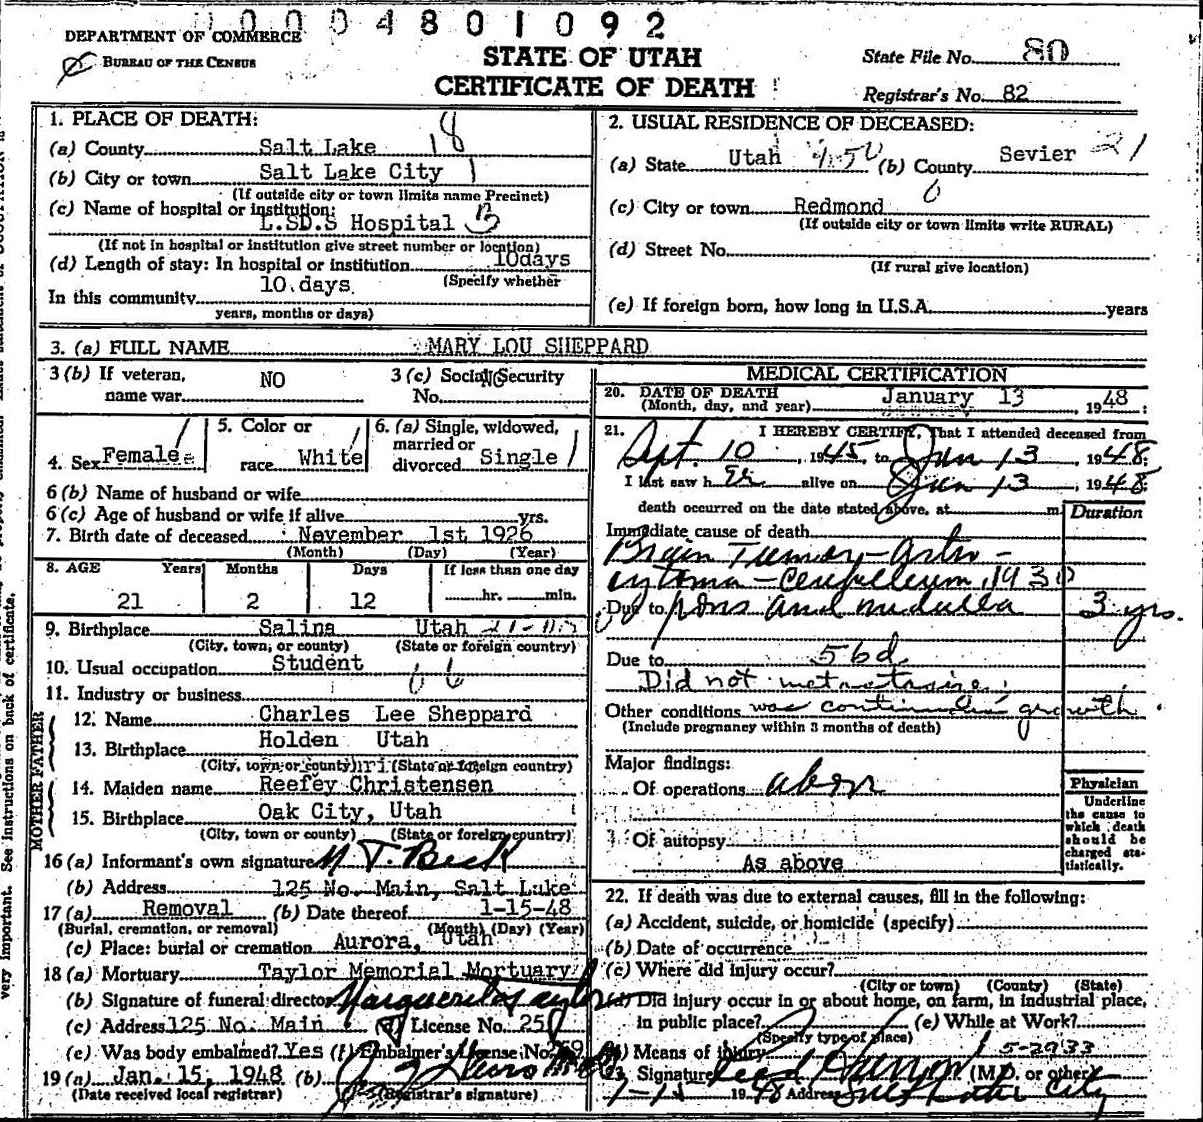 00004801092
DEPARTMENT OF COMMERCE
BUREAU OF THE CENSUS
STATE OF UTAH
CERTIFICATE OF DEATH
State File No. 80
Registrar's No. 82
1. PLACE OF DEATH:
(a) County Salt Lake 18
(b) City or town Salt Lake City 1
(If outside city or town limits name Precinct)
(c) Name of hospital or institution:
L.SD.S Hospital B
(If not in hospital or institution give street number or location)
(d) Length of stay: In hospital or institution 10days
(Specify whether
In this community 10 days
years, months or days)
2. USUAL RESIDENCE OF DECEASED:
(a) State Utah (b) County Sevier 21
(c) City or town Redmond 6
(If outside city or town limits write RURAL)
(d) Street No.
(If rural give location)
(e) If foreign born, how long in U.S.A. years
3. (a) FULL NAME MARY LOU SHEPPARD
3 (b) If veteran, name war NO
3 (c) Social Security No. NO
4. Sex Female
5. Color or race White
6. (a) Single, widowed, married or divorced Single
6 (b) Name of husband or wife
6 (c) Age of husband or wife if alive yrs.
7. Birth date of deceased November 1st 1926
(Month) (Day) (Year)
8. AGE Years Months Days If less than one day
21 2 12 hr. min.
9. Birthplace Salina Utah
(City, town, or county) (State or foreign country)
10. Usual occupation Student
11. Industry or business 66
FATHER
12. Name Charles Lee Sheppard
13. Birthplace Holden Utah
(City, town or county) (State or foreign country)
MOTHER
14. Maiden name Reefey Christensen
15. Birthplace Oak City, Utah
(City, town or county) (State or foreign country)
16 (a) Informant's own signature N T. Beck
(b) Address 125 No. Main, Salt Lake
17 (a) Removal (b) Date thereof 1-15-48
(Burial, cremation, or removal) (Month) (Day) (Year)
(c) Place: burial or cremation Aurora, Utah
18 (a) Mortuary Taylor Memorial Mortuary
(b) Signature of funeral director
(c) Address 125 No. Main (d) License No. 250
(e) Was body embalmed? Yes (f) Embalmer's License No. 269
19 (a) Jan. 15, 1948 (b)
(Date received local registrar) (Registrar's signature)
MEDICAL CERTIFICATION
20. DATE OF DEATH
(Month, day, and year) January 13, 1948
21. I HEREBY CERTIFY, That I attended deceased from
Sept. 10, 1945, to Jan 13, 1948
I last saw h er alive on Jan 13, 1948
death occurred on the date stated above, at m.
Duration
Immediate cause of death
Brain Tumor - Astro-
cytoma - Cerebellum, 1930
Due to pons and medulla 3 yrs.
Due to 56d
Did not metastasize
Other conditions was continuous growth
(Include pregnancy within 3 months of death)
Major findings:
Of operations above
Of autopsy
As above
Physician
Underline
the cause to
which death
should be
charged sta-
tistically.
22. If death was due to external causes, fill in the following:
(a) Accident, suicide, or homicide (specify)
(b) Date of occurrence
(c) Where did injury occur?
(City or town) (County) (State)
(d) Did injury occur in or about home, on farm, in industrial place,
in public place? (e) While at Work?
(Specify type of place)
(f) Means of injury 5-2933
23. Signature (M.D. or other)
1948 Address Salt Lake City
very important. See instructions on back of certificate.